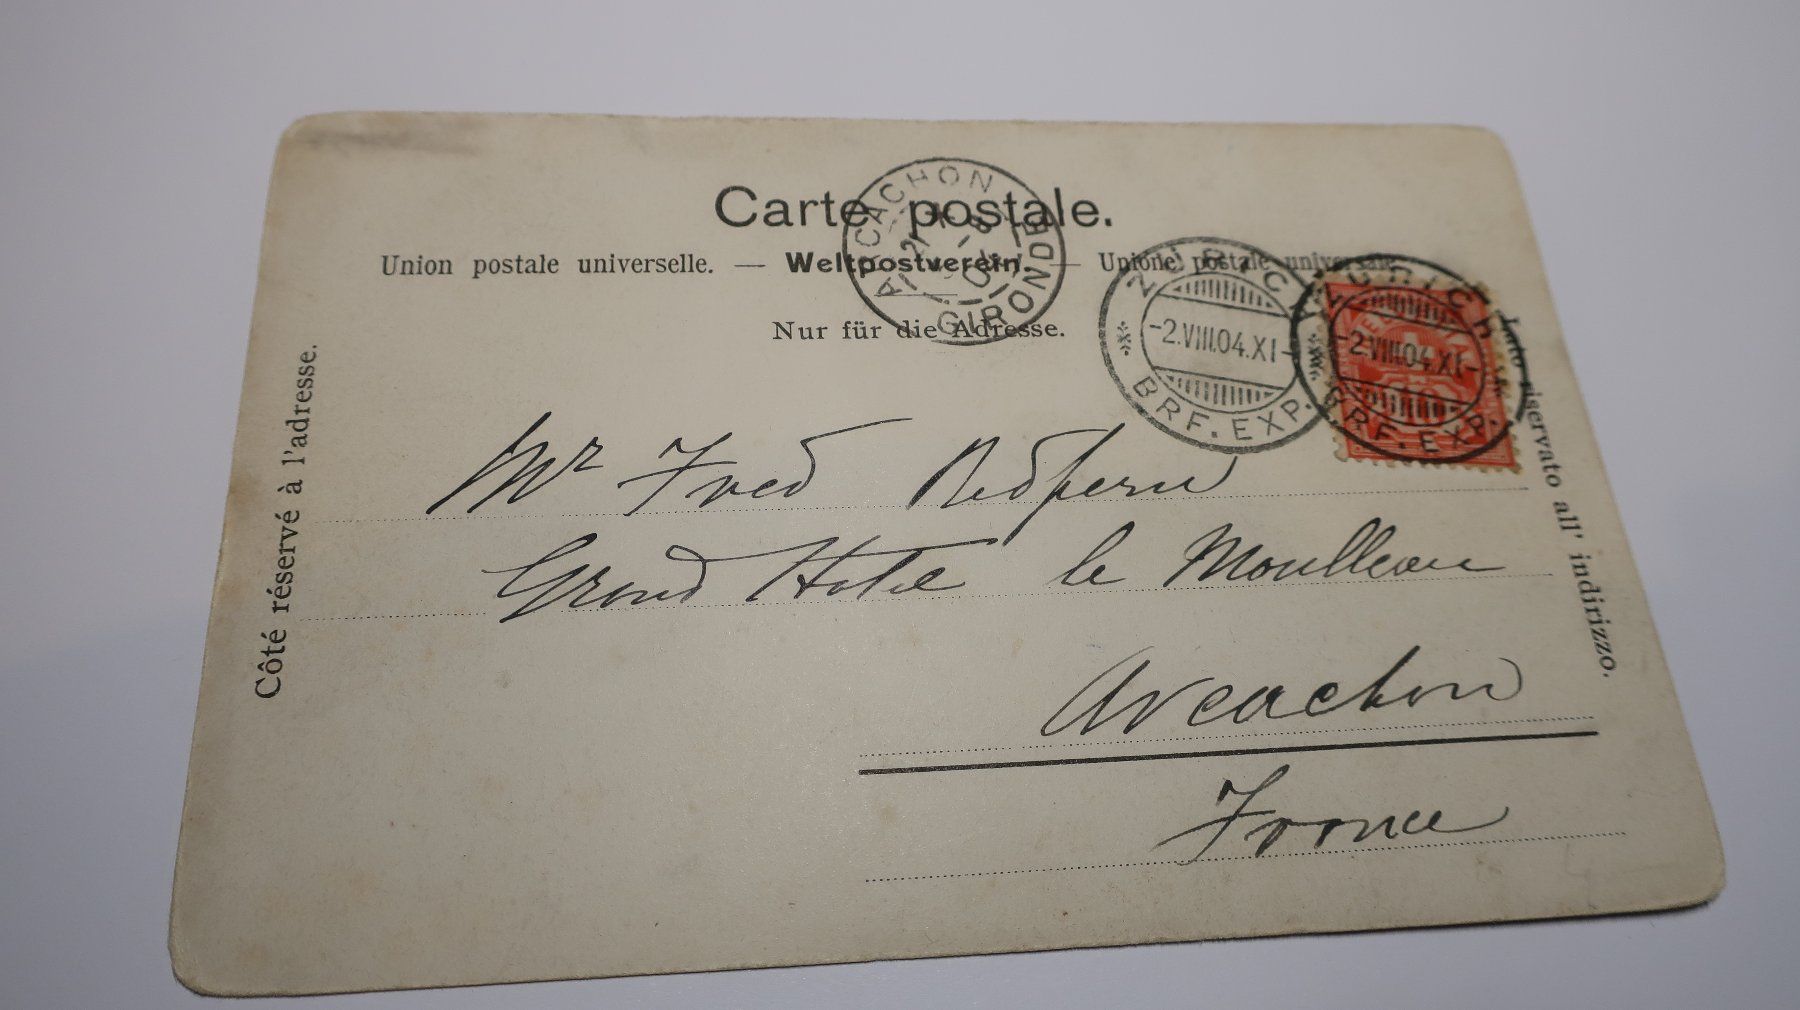 Carte postale.
Union postale universelle. — Weltpostverein. — Unione postale universale.
Nur für die Adresse.
Côté réservé à l'adresse.
Lato riservato all' indirizzo.
ARCACHON
GIRONDE
ZÜRICH
-2.VIII.04.XI-
BRF. EXP.
ZÜRICH
-2.VIII.04.XI-
BRF. EXP.
Mr Fred Redfern
Grand Hotel le Moulleau
Arcachon
France